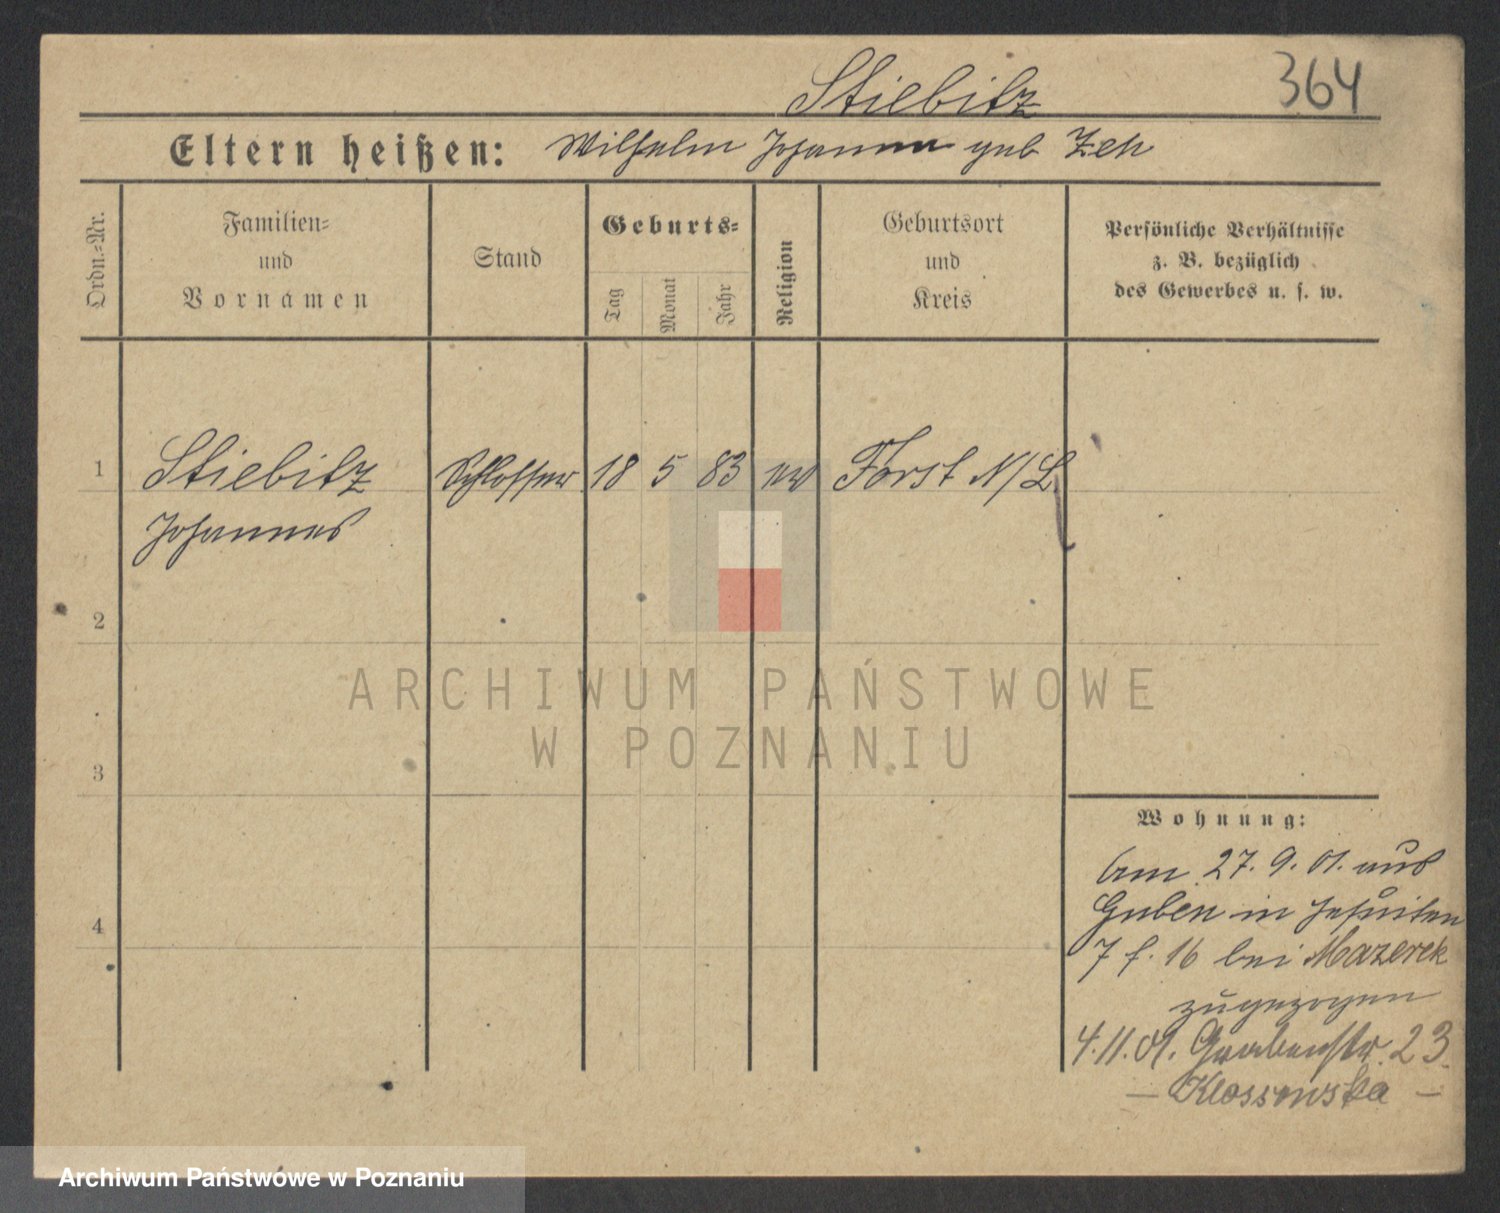 Stiebitz
364
Eltern heißen: Wilhelm Johanna geb Zeh
Ordn.-Nr.
Familien-
und
Vornamen
Stand
Geburts-
Tag
Monat
Jahr
Religion
Geburtsort
und
Kreis
Persönliche Verhältnisse
z. B. bezüglich
des Gewerbes u. s. w.
1 Stiebitz Schlosser 18 5 83 ev Forst N/L
Johannes
2
ARCHIWUM PAŃSTWOWE
W POZNANIU
3
Wohnung:
Am 27. 9. 01. aus
Guben in Jesuiten
7 f. 16 bei Mazerek
zugezogen
4
4.11.01. Grabenstr. 23
— Klossowska —
Archiwum Państwowe w Poznaniu